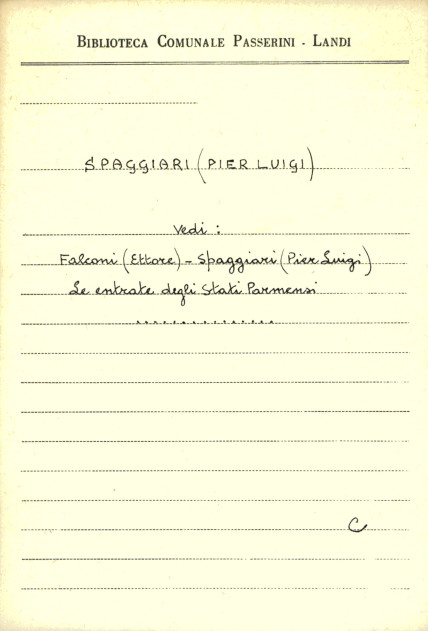 BIBLIOTECA COMUNALE PASSERINI - LANDI
SPAGGIARI (PIER LUIGI)
Vedi :
Falconi (Ettore) - Spaggiari (Pier Luigi)
Le entrate degli Stati Parmensi
..............
C